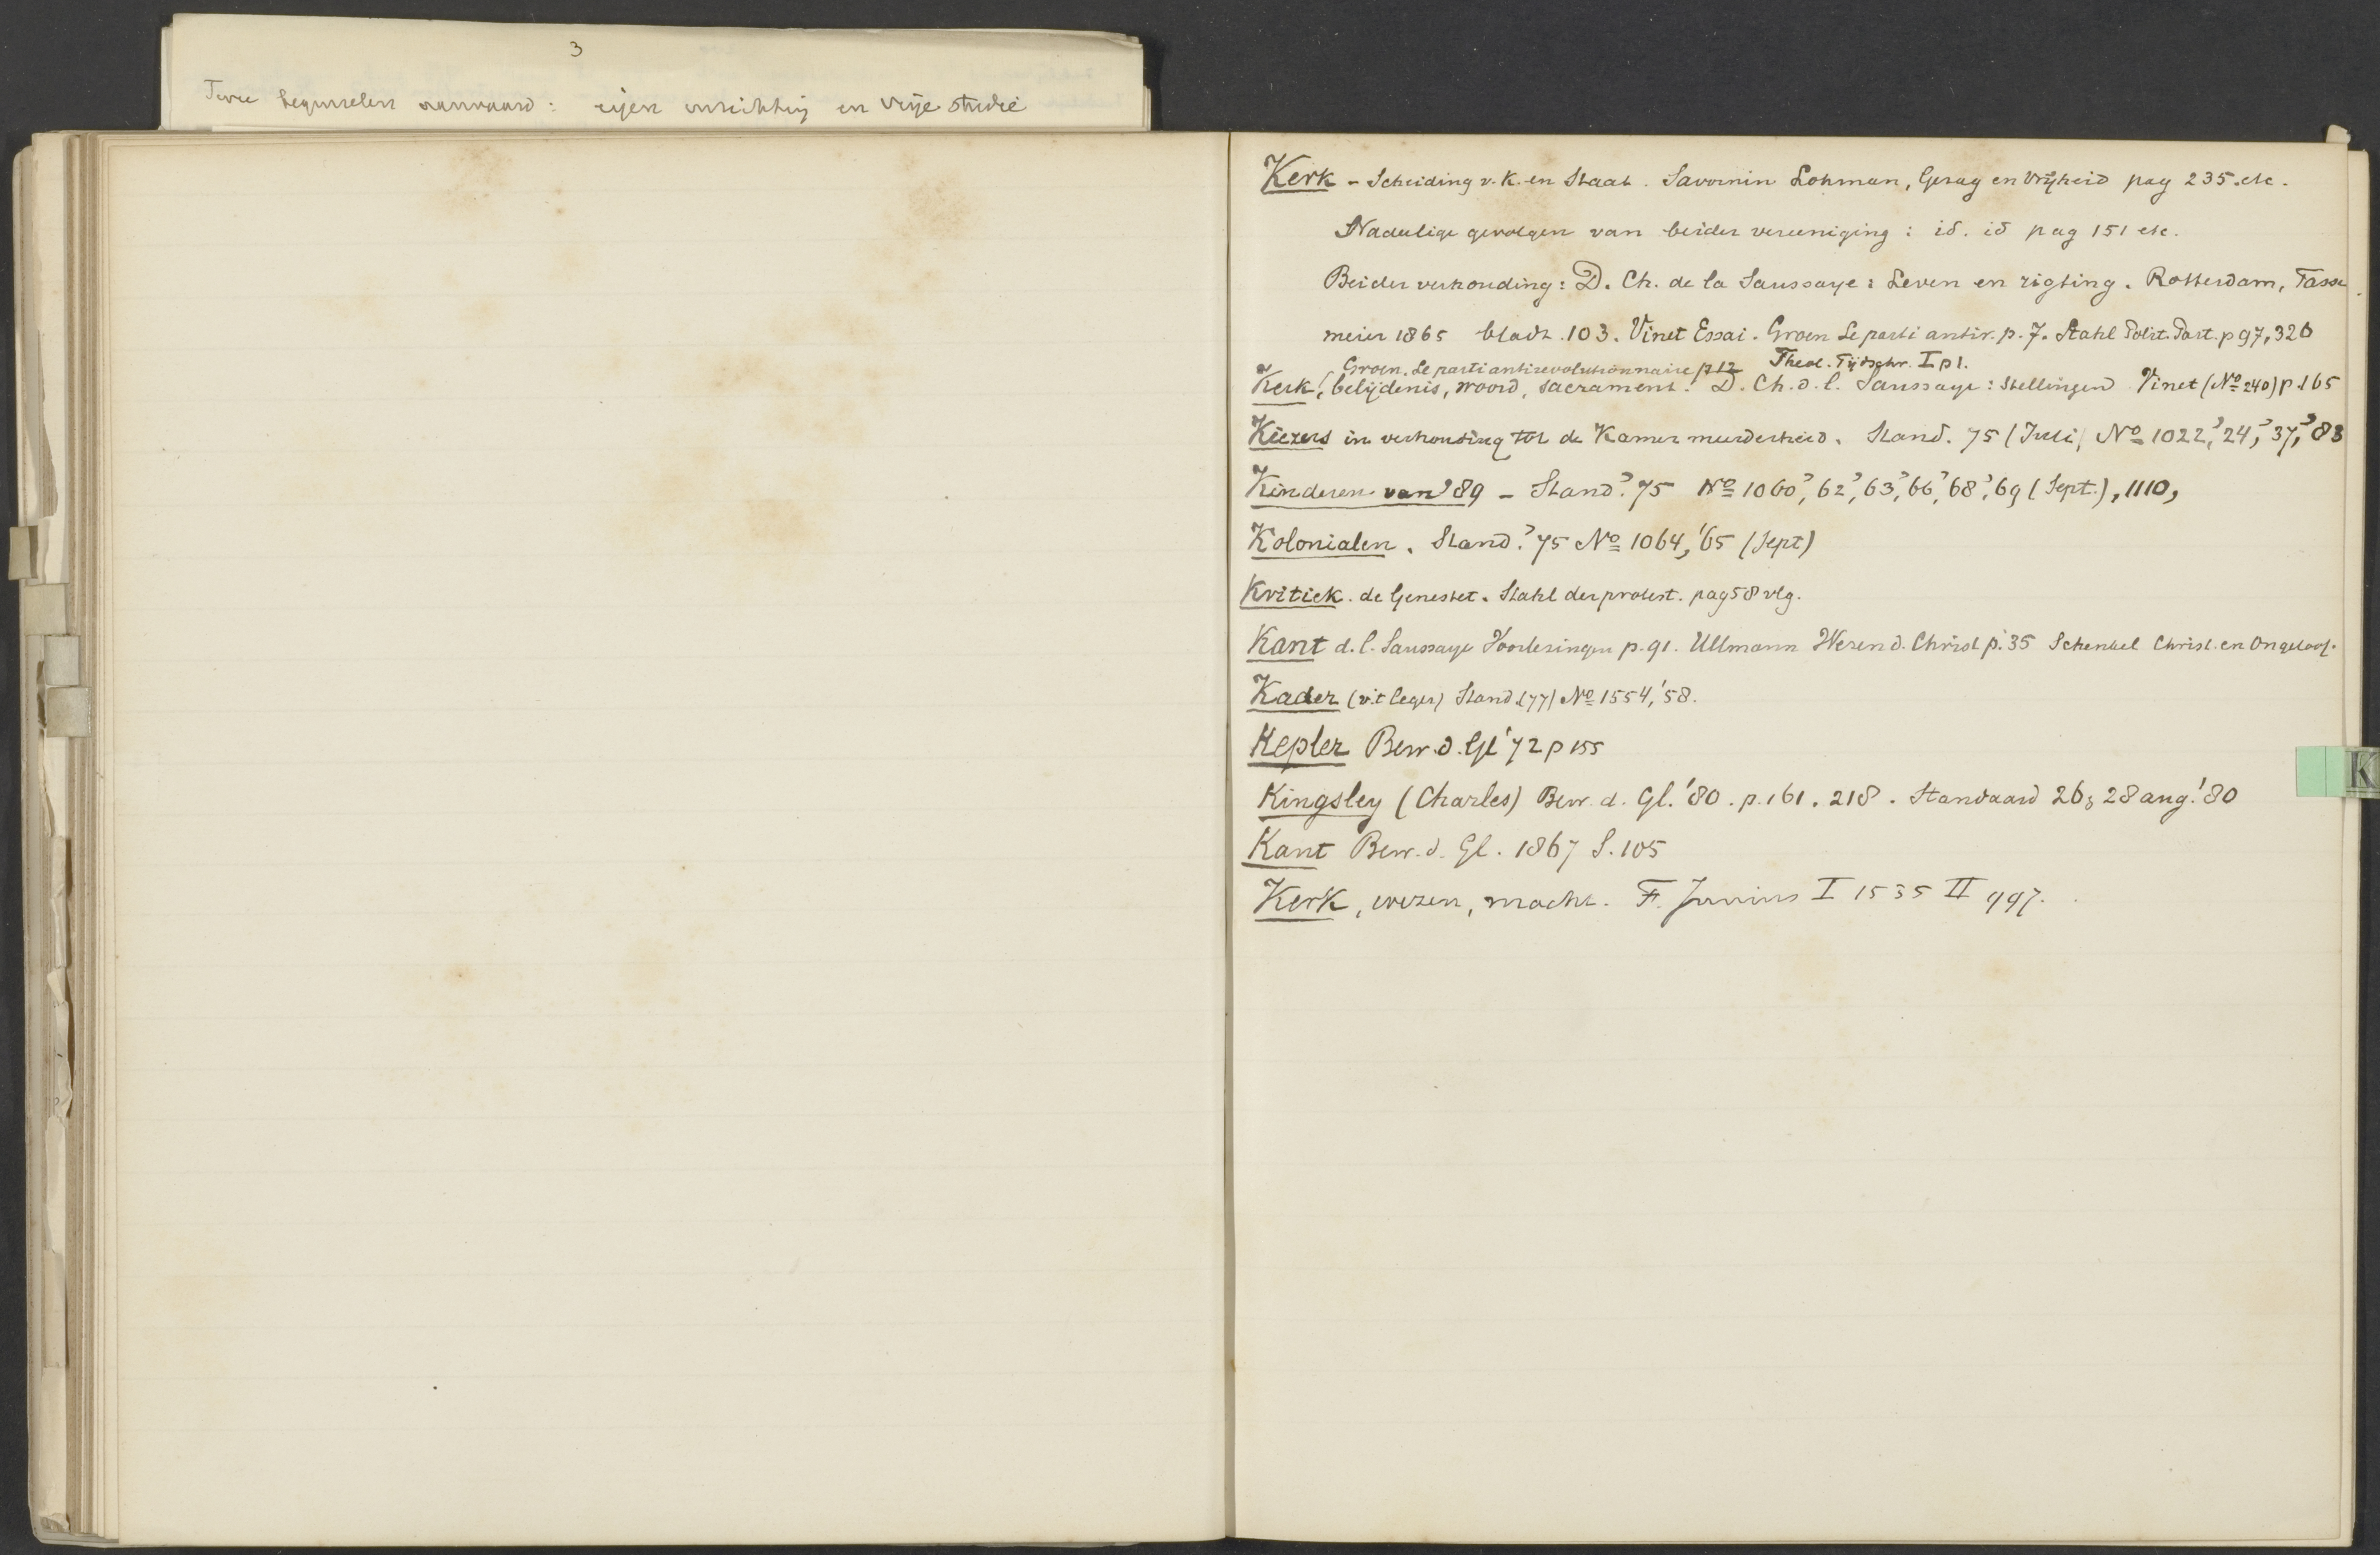 3
Twee beginselen aanvaard: eigen inrichting en vrije studie
Kerk - Scheiding v. K. en Staat. Savornin Lohman, Gezag en Vrijheid pag 235. etc.
Nadeelige gevolgen van beider vereeniging: id. id pag 151 etc.
Beider verhouding: D. Ch. de la Saussaye: Leven en rigting. Rotterdam, Tasse
meier 1865 bladz. 103. Vinet Essai. Groen Le parti antir. p. 7. Stahl Polit. Part. p 97, 326
Groen. Le parti antirevolutionnaire p 12 Theol. Tijdschr. I p 1.
Kerk, belijdenis, woord, sacrament. D. Ch. d. l. Saussaye: Stellingen Vinet (No 240) p 165
Kiezers in verhouding tot de Kamer meerderheid. Stand. 75 (Juli) No 1022, '24, '37, '83
Kinderen van '89 - Stand. '75 No 1060, '62, '63, '66, '68, '69 (Sept.), 1110,
Kolonialen. Stand. '75 No 1064, '65 (Sept)
Kritiek. de Genestet. Stahl der protest. pag 58 vlg.
Kant d. l. Saussaye Voorlezingen p. 91. Ullmann Wezen d. Christ p. 35 Schenkel Christ. en Ongeloof.
Kader (v. t leger) Stand. (77) No 1554, '58.
Kepler Bew. d. Gl '72 p 155
Kingsley (Charles) Bew. d. Gl. '80. p. 161. 218. Standaard 26, 28 aug. '80
K
Kant Bew. d. Gl. 1867 S. 105
Kerk, wezen, macht. F. Junius I 1535 II 997.